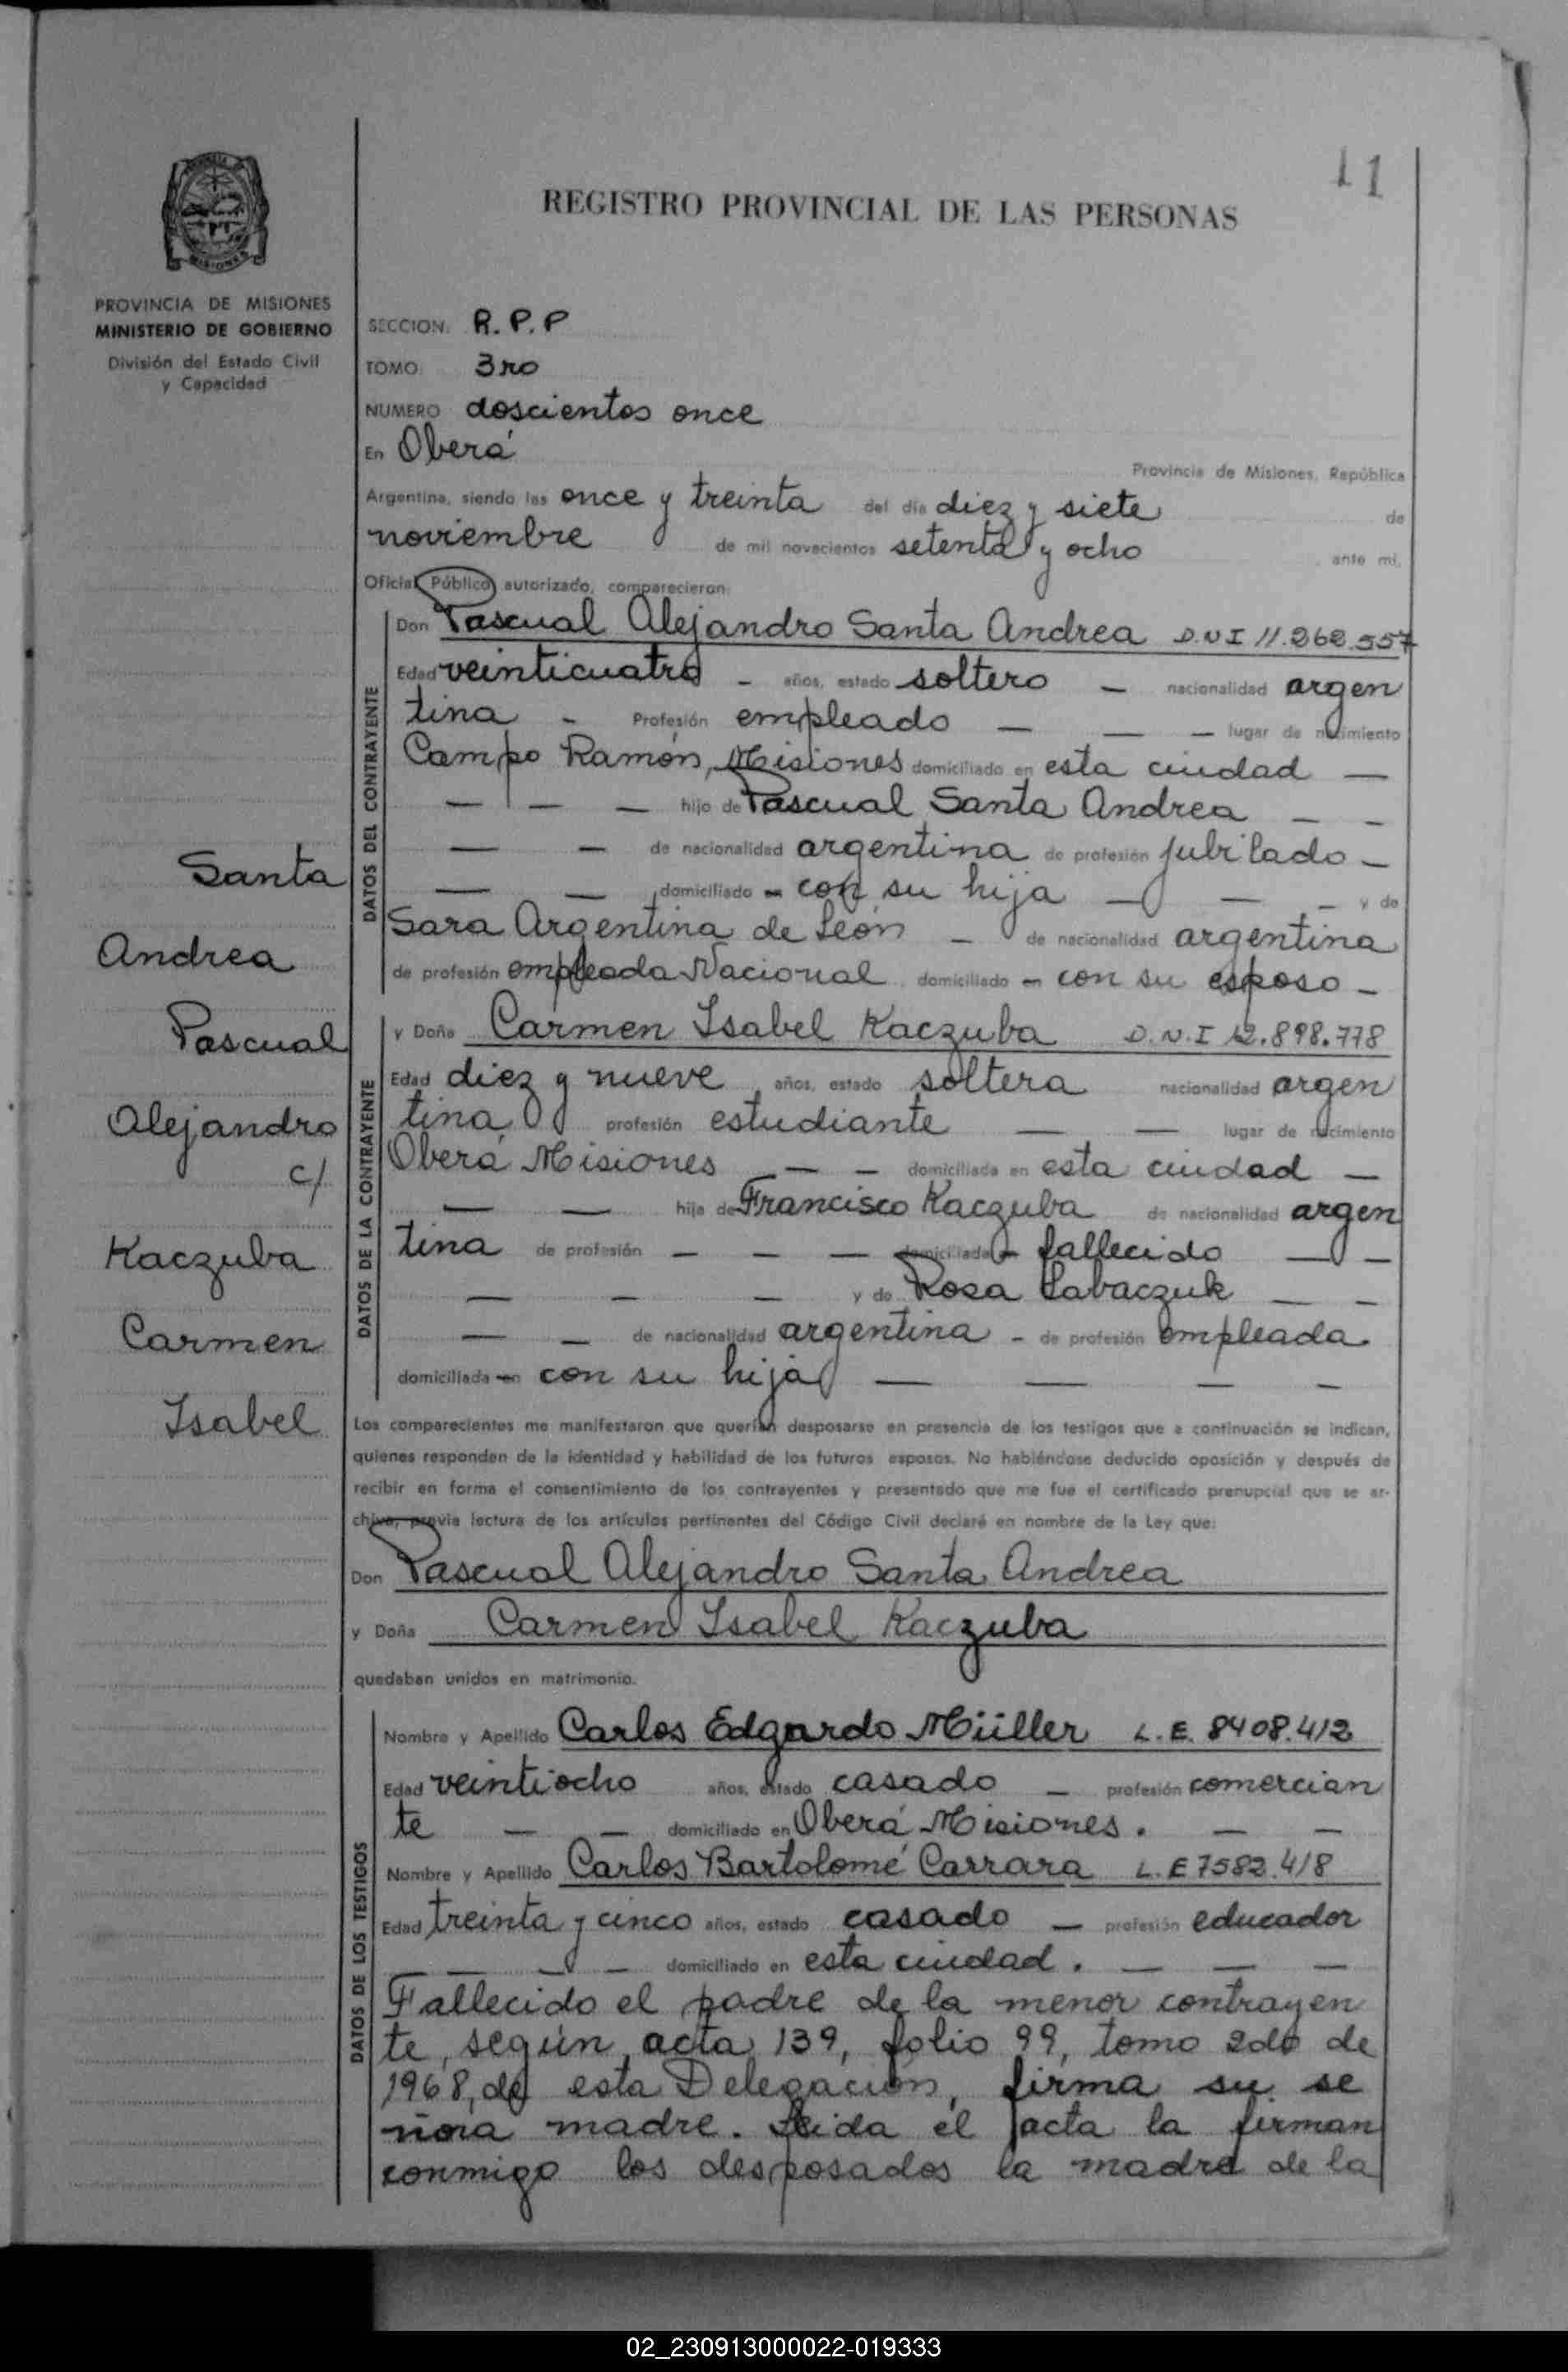 11
REGISTRO PROVINCIAL DE LAS PERSONAS
PROVINCIA DE MISIONES
MINISTERIO DE GOBIERNO
División del Estado Civil
y Capacidad
SECCION: R.P.P
TOMO: 3ro
NUMERO doscientos once
En Oberá Provincia de Misiones, República
Argentina, siendo las once y treinta del día diez y siete de
noviembre de mil novecientos setenta y ocho , ante mí,
Oficial Público autorizado, comparecieron:
DATOS DEL CONTRAYENTE
Don Pascual Alejandro Santa Andrea D.N.I 11.262.557
Edad veinticuatro - años, estado soltero - nacionalidad argen
tina - Profesión empleado — — — lugar de nacimiento
Campo Ramón, Misiones domiciliado en esta ciudad —
— — — hijo de Pascual Santa Andrea — —
— — de nacionalidad argentina de profesión jubilado —
— — domiciliado en con su hija — — — y de
Sara Argentina de León — de nacionalidad argentina
de profesión empleada Nacional domiciliado en con su esposo —
DATOS DE LA CONTRAYENTE
y Doña Carmen Isabel Kaczuba D.N.I 12.898.778
Edad diez y nueve años, estado soltera nacionalidad argen
tina profesión estudiante — — lugar de nacimiento
Oberá Misiones — — domiciliada en esta ciudad —
— — hija de Francisco Kaczuba de nacionalidad argen
tina de profesión — — — domiciliada en fallecido — —
— — — y de Rosa Labaczuk — —
— — de nacionalidad argentina - de profesión empleada
domiciliada en con su hija — — — —
Santa
Andrea
Pascual
Alejandro
c/
Kaczuba
Carmen
Isabel
Los comparecientes me manifestaron que querían desposarse en presencia de los testigos que a continuación se indican,
quienes responden de la identidad y habilidad de los futuros esposos. No habiéndose deducido oposición y después de
recibir en forma el consentimiento de los contrayentes y presentado que me fue el certificado prenupcial que se ar-
chiva, previa lectura de los artículos pertinentes del Código Civil declaré en nombre de la Ley que:
Don Pascual Alejandro Santa Andrea
y Doña Carmen Isabel Kaczuba
quedaban unidos en matrimonio.
DATOS DE LOS TESTIGOS
Nombre y Apellido Carlos Edgardo Müller L.E. 8408.412
Edad veintiocho años, estado casado — profesión comercian
te — — domiciliado en Oberá Misiones. — —
Nombre y Apellido Carlos Bartolomé Carrara L.E 7582.418
Edad treinta y cinco años, estado casado — profesión educador
— — — — domiciliado en esta ciudad. — — —
Fallecido el padre de la menor contrayen
te, según acta 139, folio 99, tomo 2do de
1968, de esta Delegación, firma su se
ñora madre. Leida el acta la firman
conmigo los desposados la madre de la
02_230913000022-019333